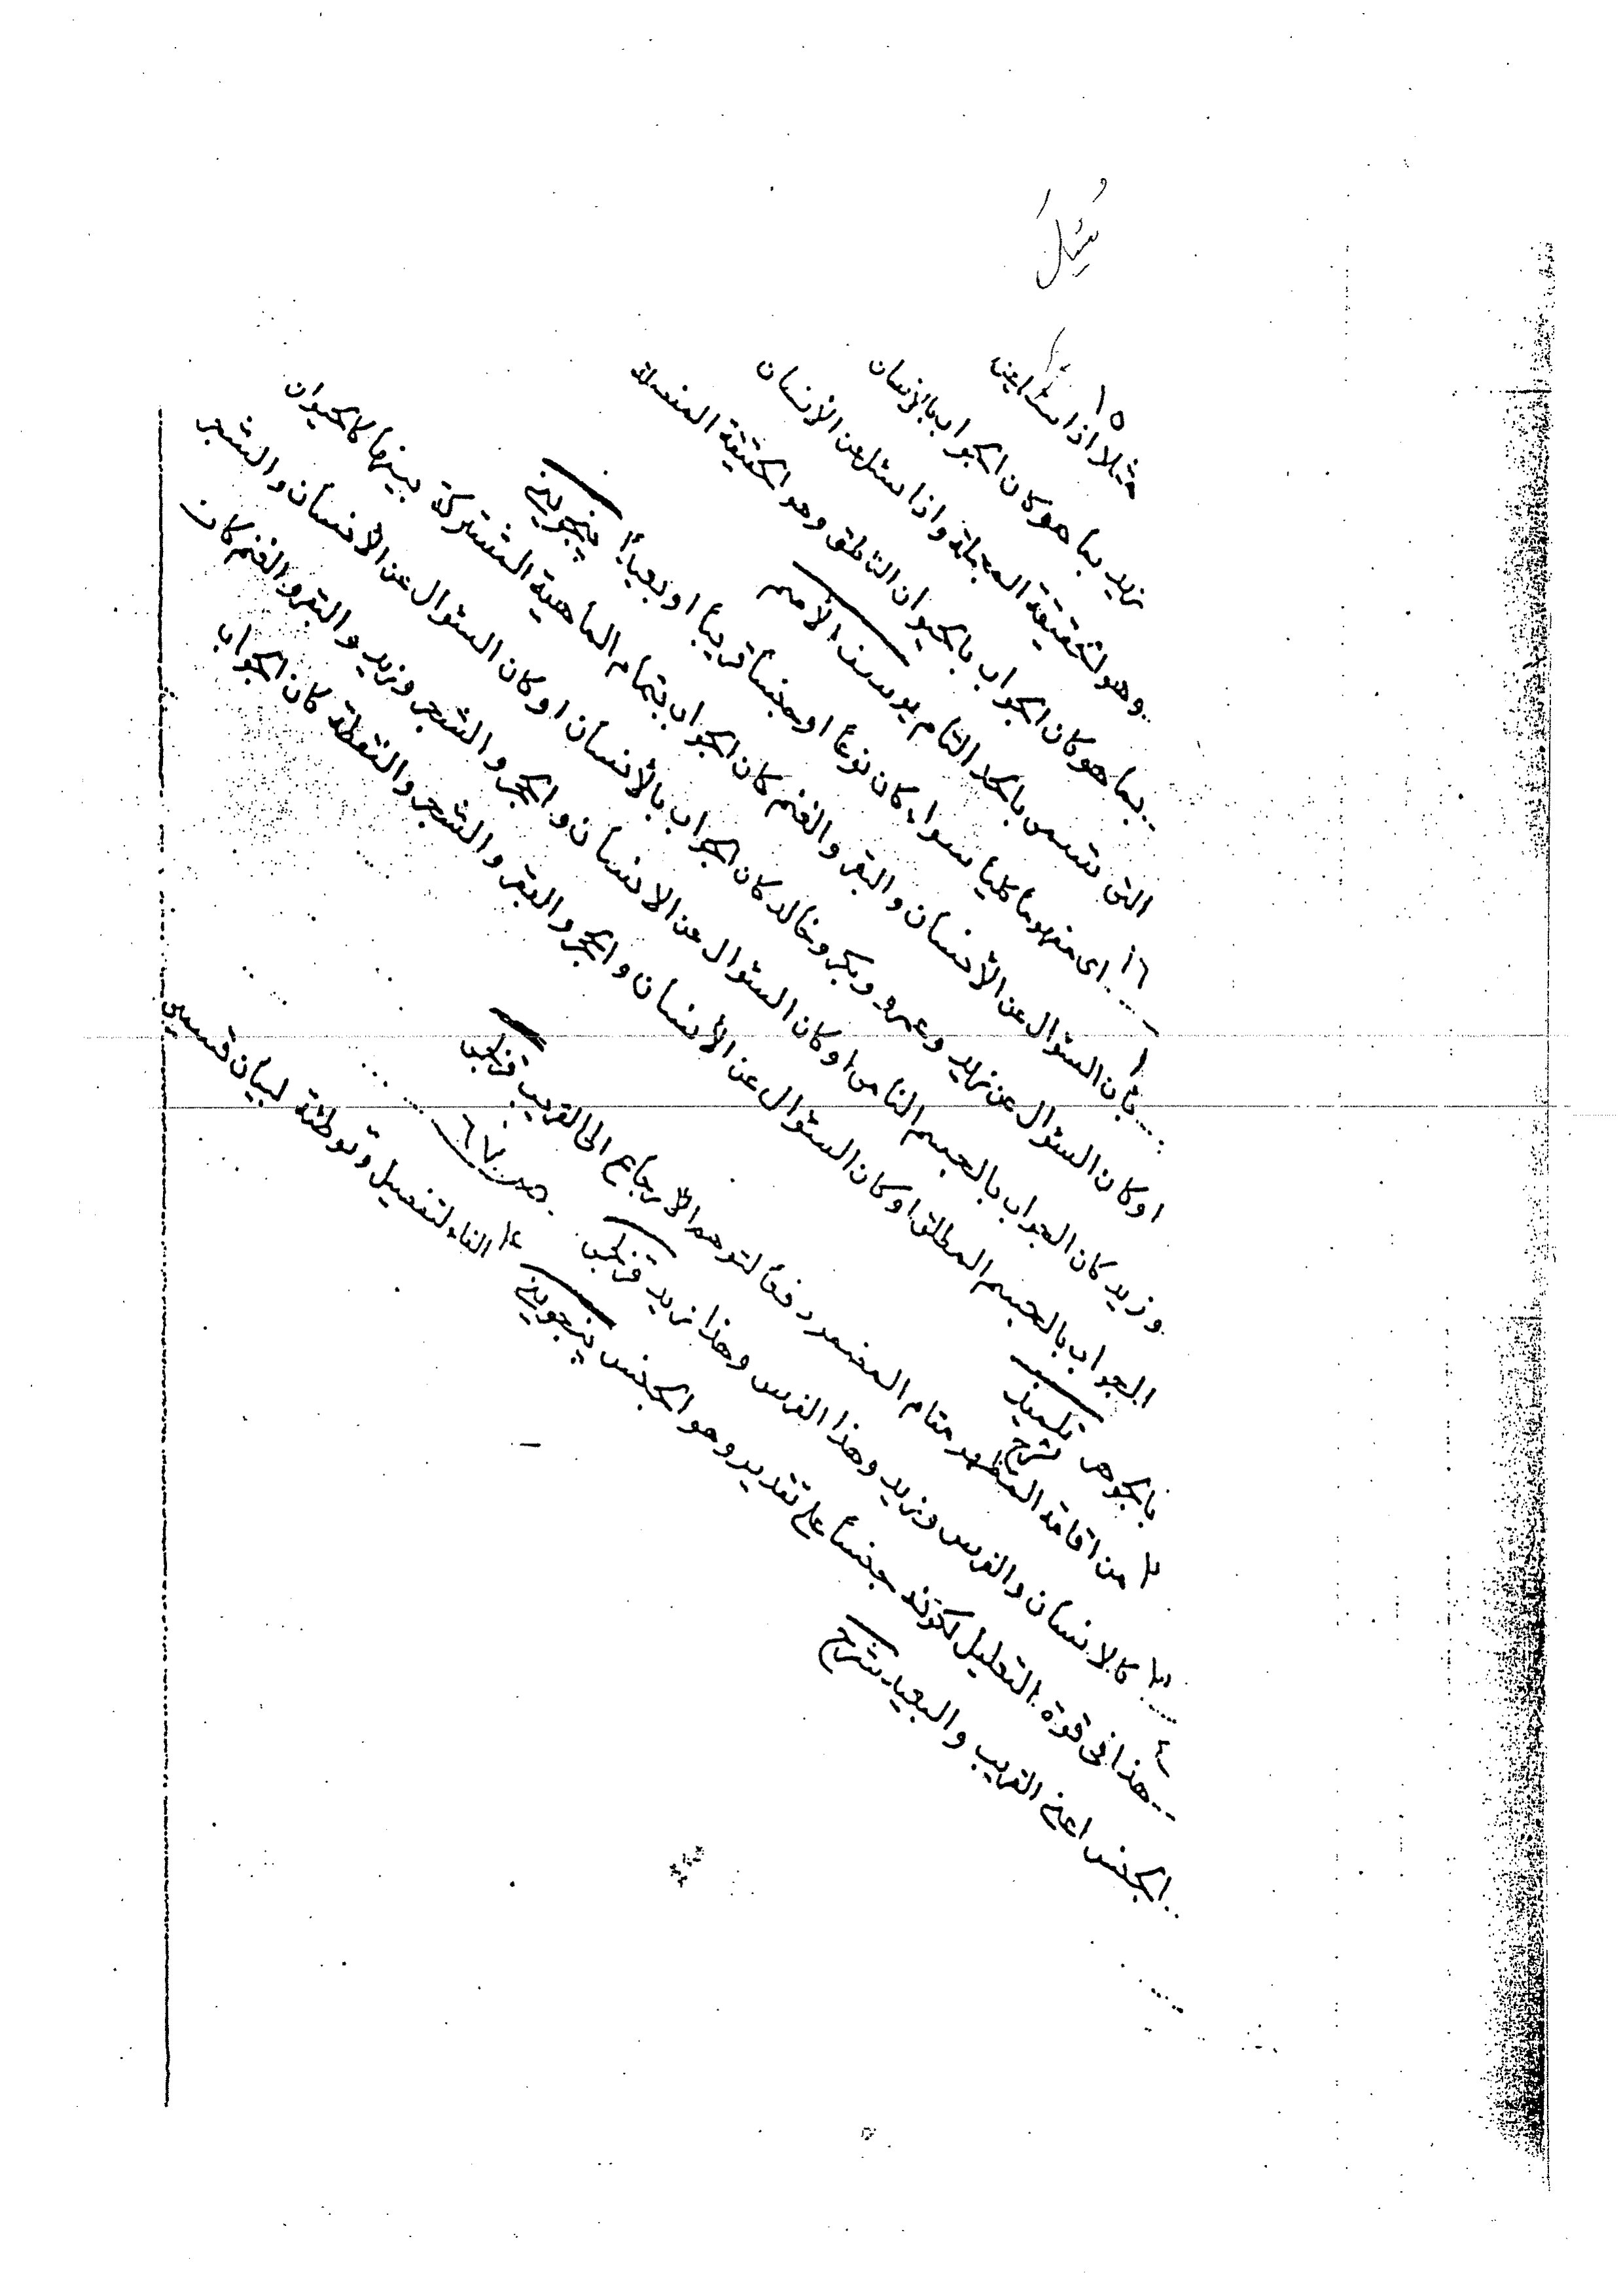 سُئِلَ
١٥
مثلا اذا سئل عن
زيد بما هو كان الجواب بالانسان
وهو الحقيقة المجملة واذا سئل عن الأنسان
بما هو كان الجواب بالحيوان الناطق وهو الحقيقة المفصلة
التى تسمى بالحد التام يوسف الأصم
١٦ اى مفهوما كليا سواء كان نوعا او جنسا قريبا او بعيدا پنجوينى
١ بأن السؤال عن الأنسان والبقر والغنم كان الجواب بتمام الماهية المشتركة بينها كالحيوان
او كان السؤال عن زيد وعمرو وبكر وخالد كان الجواب بالأنسان او كان السؤال عن الأنسان والشجر
وزيد كان الجواب بالجسم النامى او كان السؤال عن الانسان والحجر والشجر وزيد والبقر والغنم كان
الجواب بالجسم المطلق او كان السؤال عن الأنسان والحجر والبقر والشجر والنقطة كان الجواب
بالجوهر تلميذ شرح
٢ من اقامة المظهر مقام المضمر دفعا لتوهم الأرجاع الى القريب قزلجى
٣ كالانسان والفرس وزيد وهذا الفرس وهذا زيد قزلجى ص ٦٧
٤ هذا فى قوة التعليل لكونه جنسا على تقدير وهو الجنس پنجوينى ٤ الفاء لتفصيل وتوطئة لبيان قسمين
الجنس اعنى القريب والبعيد شرح